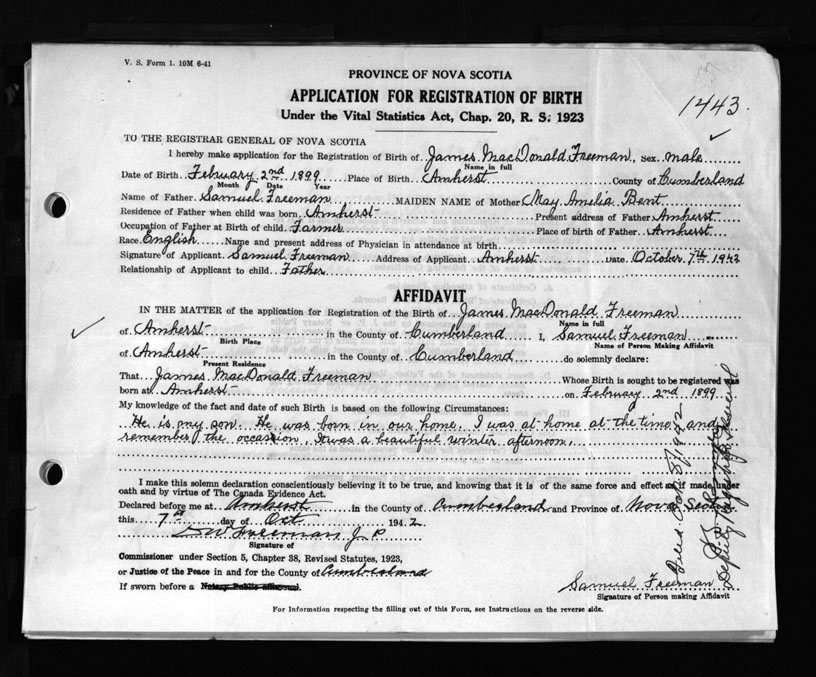 V. S. Form 1. 10M 6-41
PROVINCE OF NOVA SCOTIA
APPLICATION FOR REGISTRATION OF BIRTH
Under the Vital Statistics Act, Chap. 20, R. S. 1923
1443.
TO THE REGISTRAR GENERAL OF NOVA SCOTIA
I hereby make application for the Registration of Birth of James MacDonald Freeman, Sex male
Name in full
Date of Birth February 2nd 1899 Place of Birth Amherst County of Cumberland
Month Date Year
Name of Father Samuel Freeman MAIDEN NAME of Mother May Amelia Bent
Residence of Father when child was born Amherst Present address of Father Amherst
Occupation of Father at Birth of child Farmer Place of birth of Father Amherst
Race English Name and present address of Physician in attendance at birth
Signature of Applicant Samuel Freeman Address of Applicant Amherst Date October 7th 1942
Relationship of Applicant to child Father
AFFIDAVIT
IN THE MATTER of the application for Registration of the Birth of James MacDonald Freeman
Name in full
of Amherst in the County of Cumberland I, Samuel Freeman
Birth Place Name of Person Making Affidavit
of Amherst in the County of Cumberland do solemnly declare:
Present Residence
That James MacDonald Freeman Whose Birth is sought to be registered was
born at Amherst on February 2nd 1899
My knowledge of the fact and date of such Birth is based on the following Circumstances:
He is my son. He was born in our home. I was at home at the time and
remember the occasion. It was a beautiful winter afternoon.
I make this solemn declaration conscientiously believing it to be true, and knowing that it is of the same force and effect as if made under
oath and by virtue of The Canada Evidence Act.
Declared before me at Amherst in the County of Cumberland and Province of Nova Scotia
this 7th day of Oct 1942
Freeman J P
Signature of
Commissioner under Section 5, Chapter 38, Revised Statutes, 1923,
or Justice of the Peace in and for the County of Cumberland
If sworn before a Notary Public
Samuel Freeman
Signature of Person making Affidavit
Filed Oct 8/1942
Deputy Registrar General
For Information respecting the filling out of this Form, see Instructions on the reverse side.